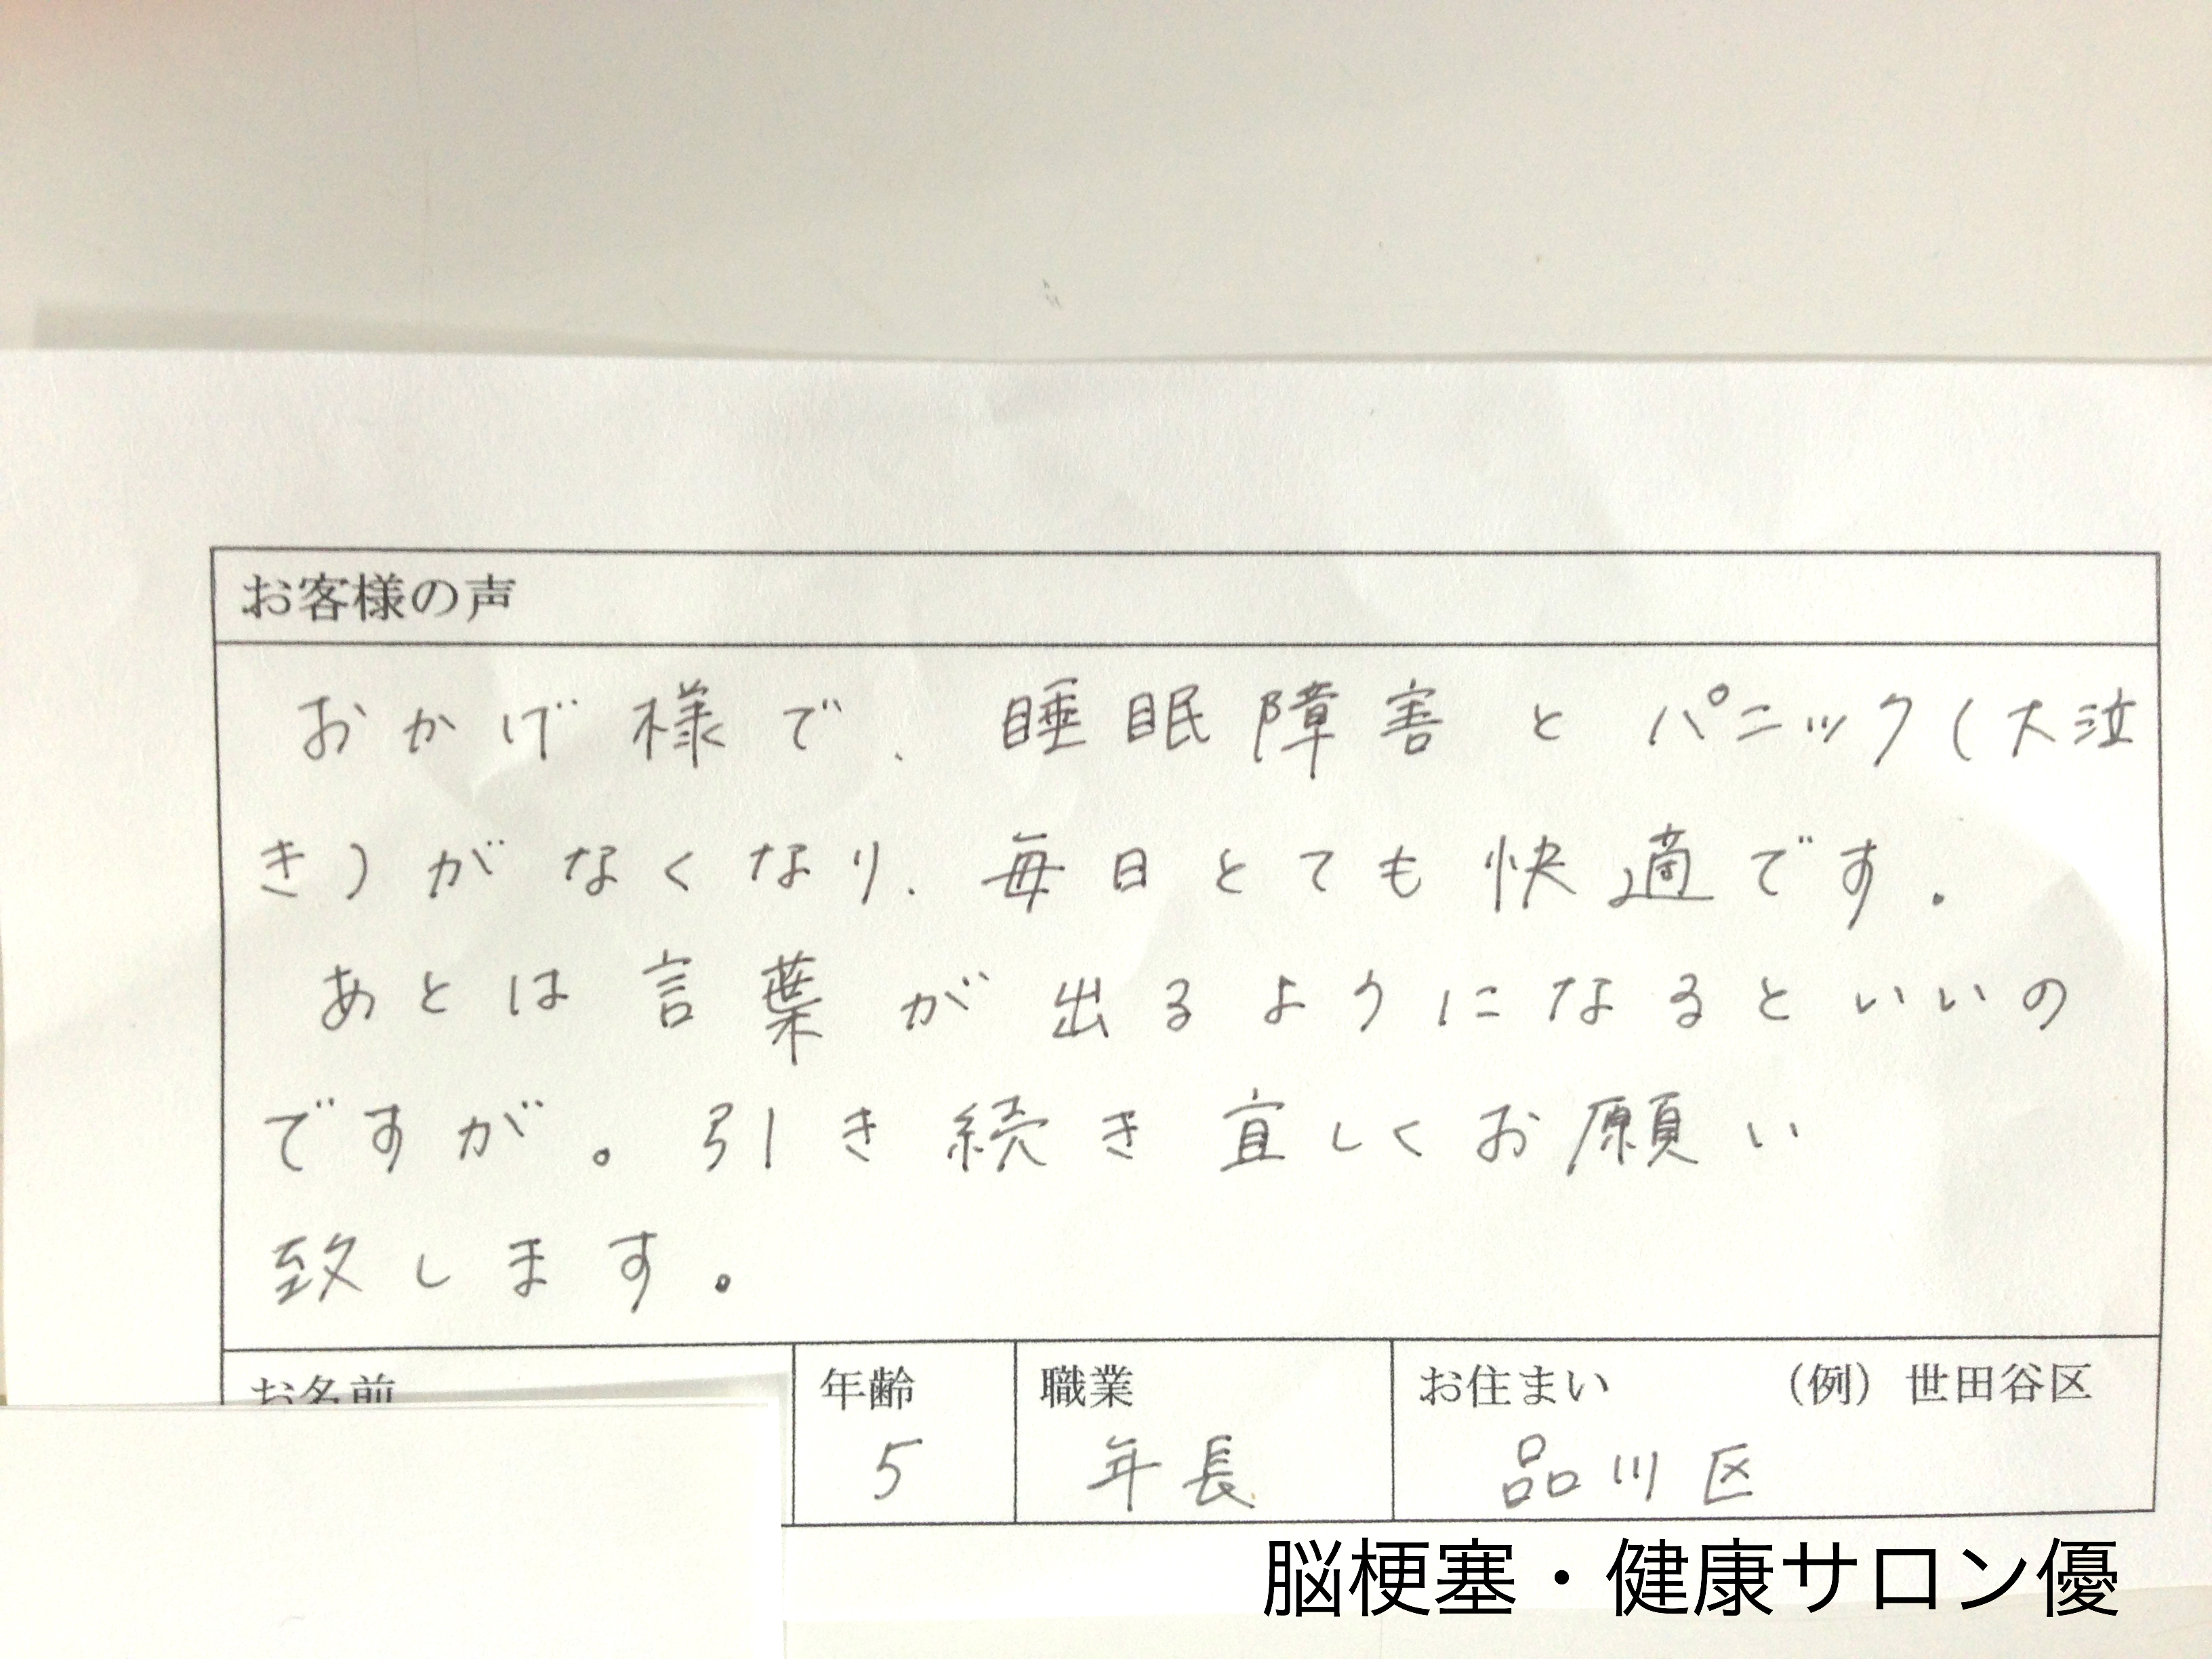 お客様の声
おかげ様で、睡眠障害とパニック(大泣
き)がなくなり、毎日とても快適です.
あとは言葉が出るようになるといいの
ですが。引き続き宜しくお願い
致します。
お名前 年齢 職業 お住まい (例)世田谷区
5 年長 品川区
脳梗塞・健康サロン優